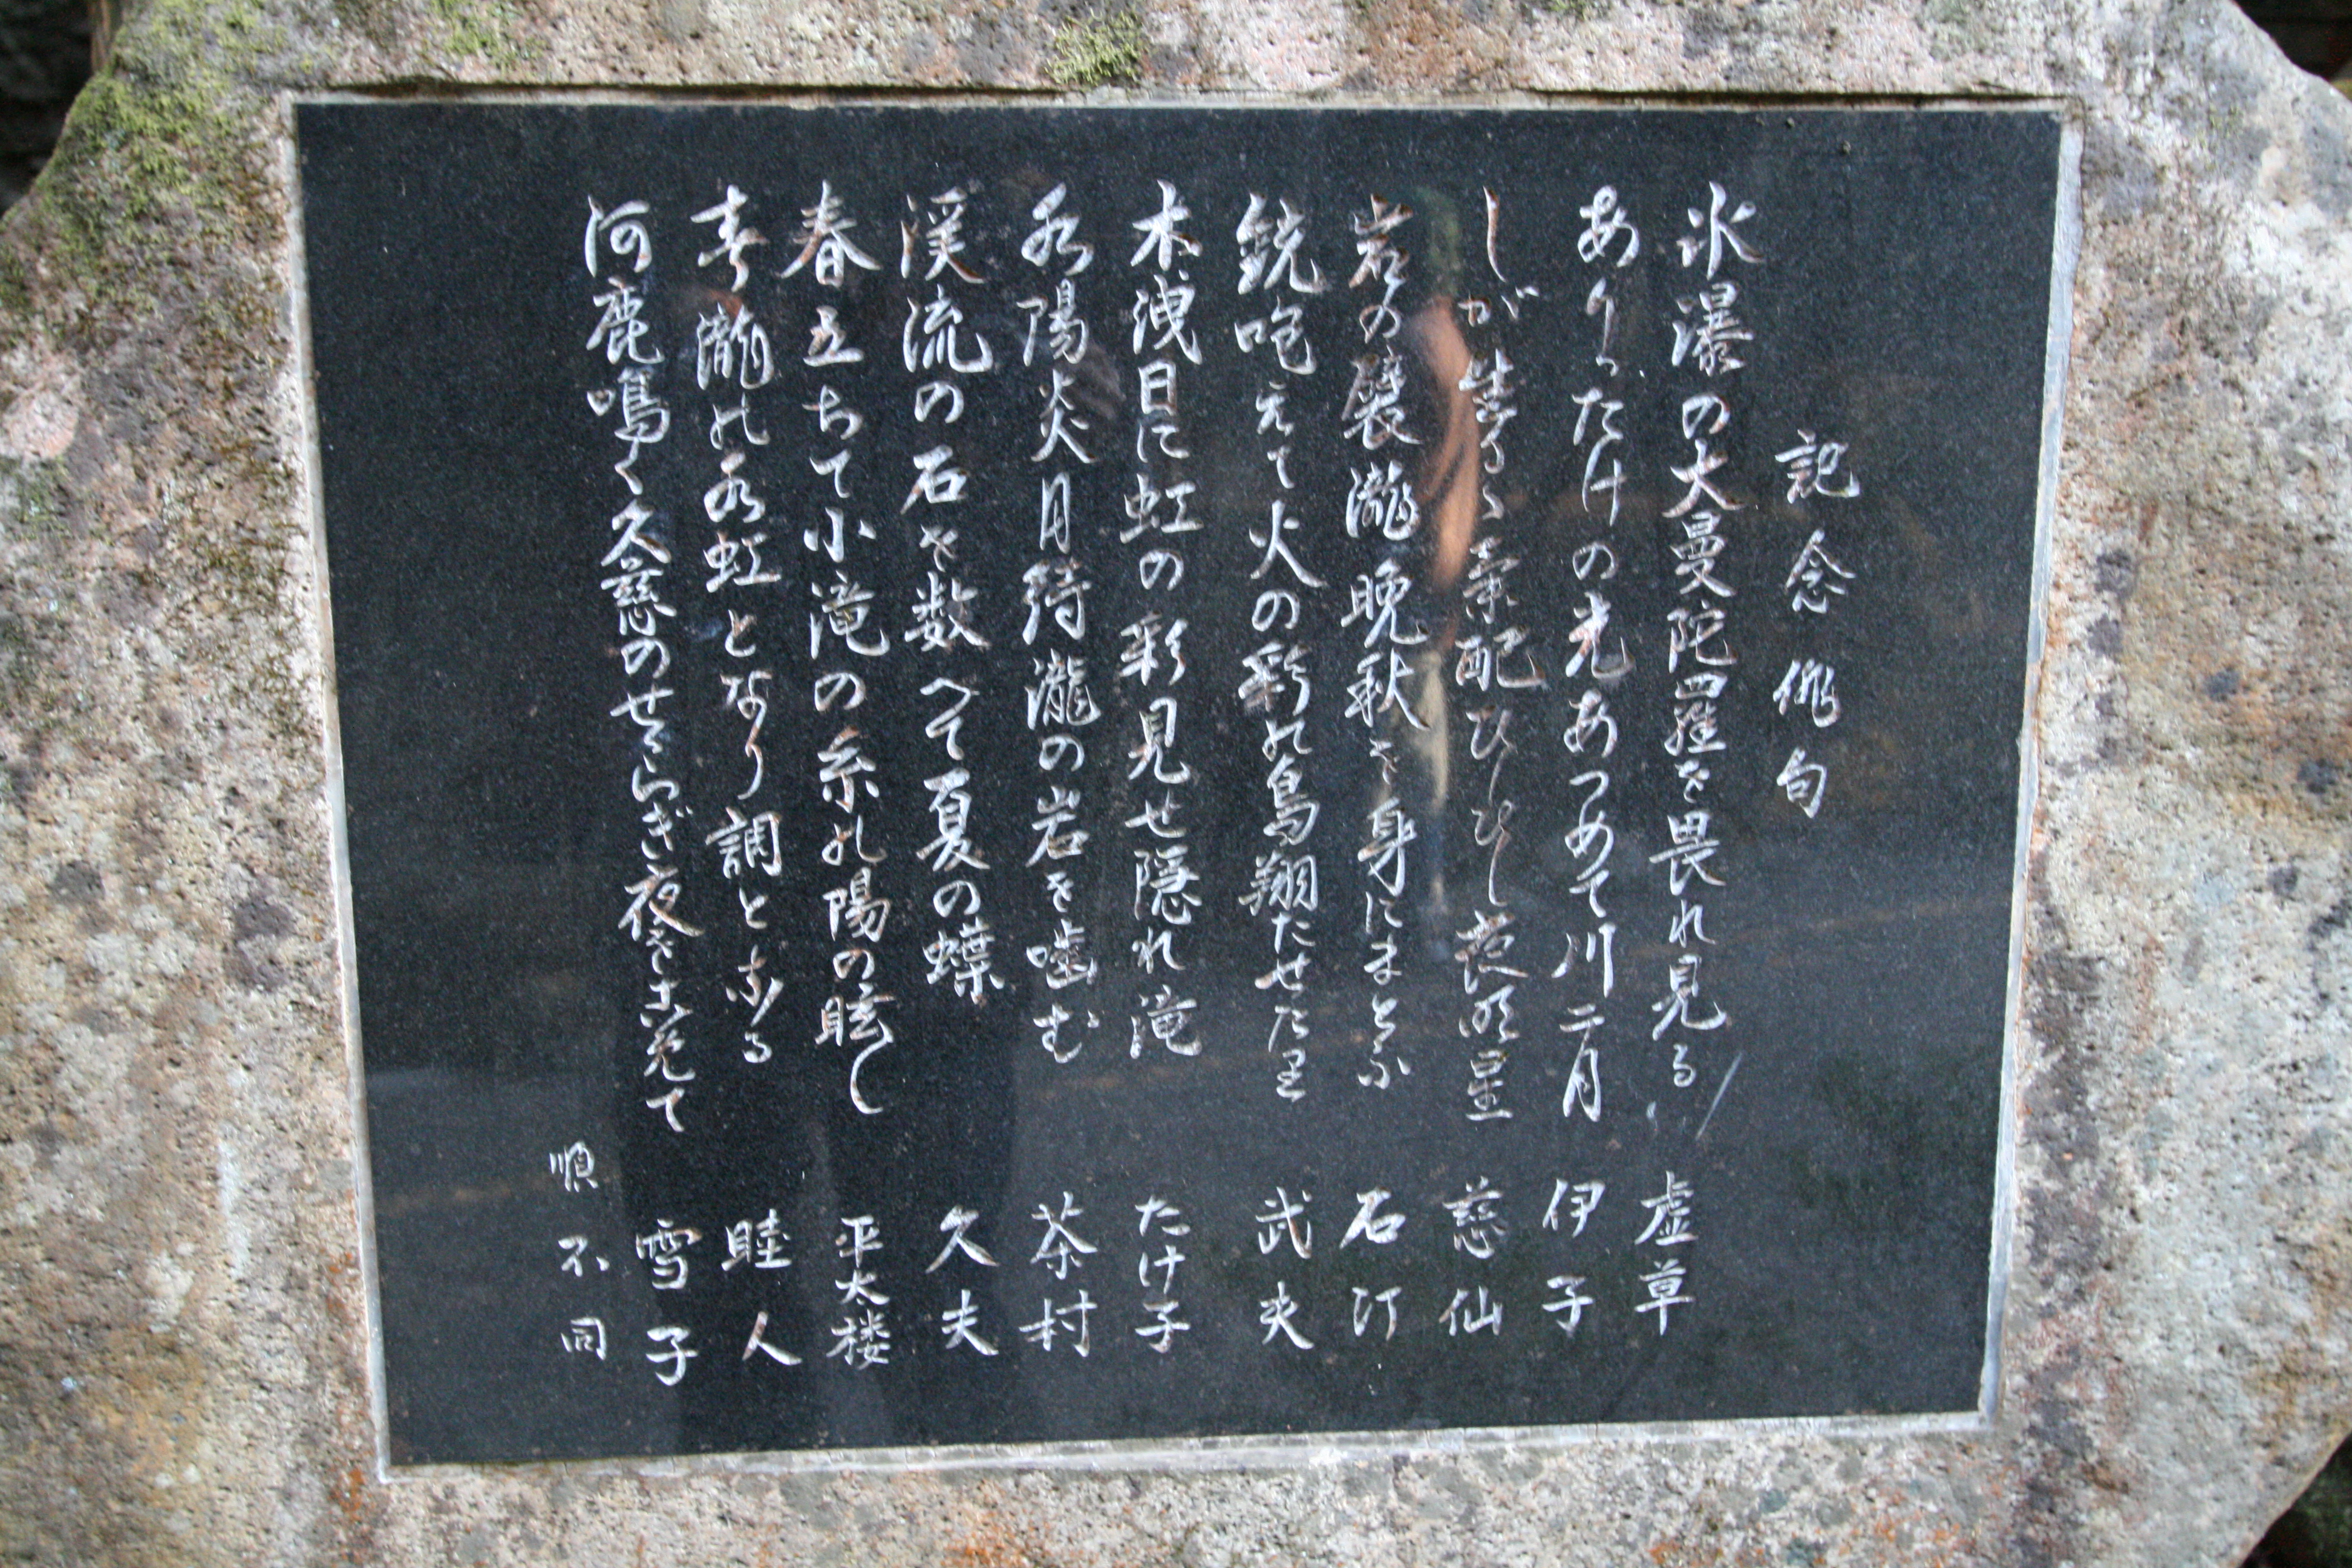 記念俳句
氷瀑の大曼陀羅を畏れ見る 虚草
ありったけの光あつめて川二月 伊子
しが生るゝ気配ひしひし夜明星 慈仙
岩の襞瀧晩秋を身にまとふ 石汀
銃咆えて火の彩の鳥翔たせたり 武夫
木洩日に虹の彩見せ隠れ滝 たけ子
水陽炎月待瀧の岩を噛む 茶村
渓流の石を数へて夏の蝶 久夫
春立ちて小滝の糸の陽の眩し 平太楼
春瀧の水虹となり調となる 睦人
河鹿鳴く久慈のせゝらぎ夜をこめて 雪子
順不同